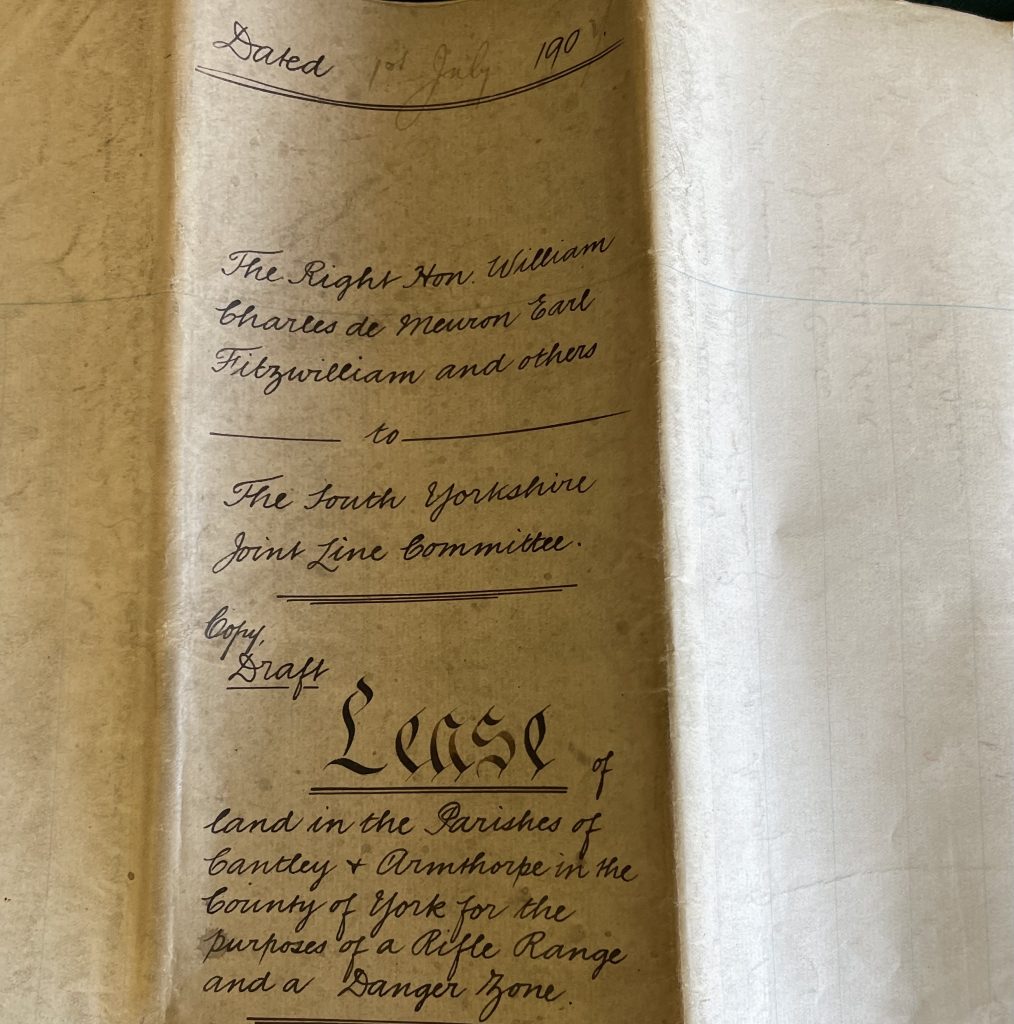 Dated 1st July 190
The Right Hon. William
Charles de Meuron Earl
Fitzwilliam and others
to
The South Yorkshire
Joint Line Committee.
Copy,
Draft
Lease of
land in the Parishes of
Cantley & Armthorpe in the
County of York for the
purposes of a Rifle Range
and a Danger Zone.